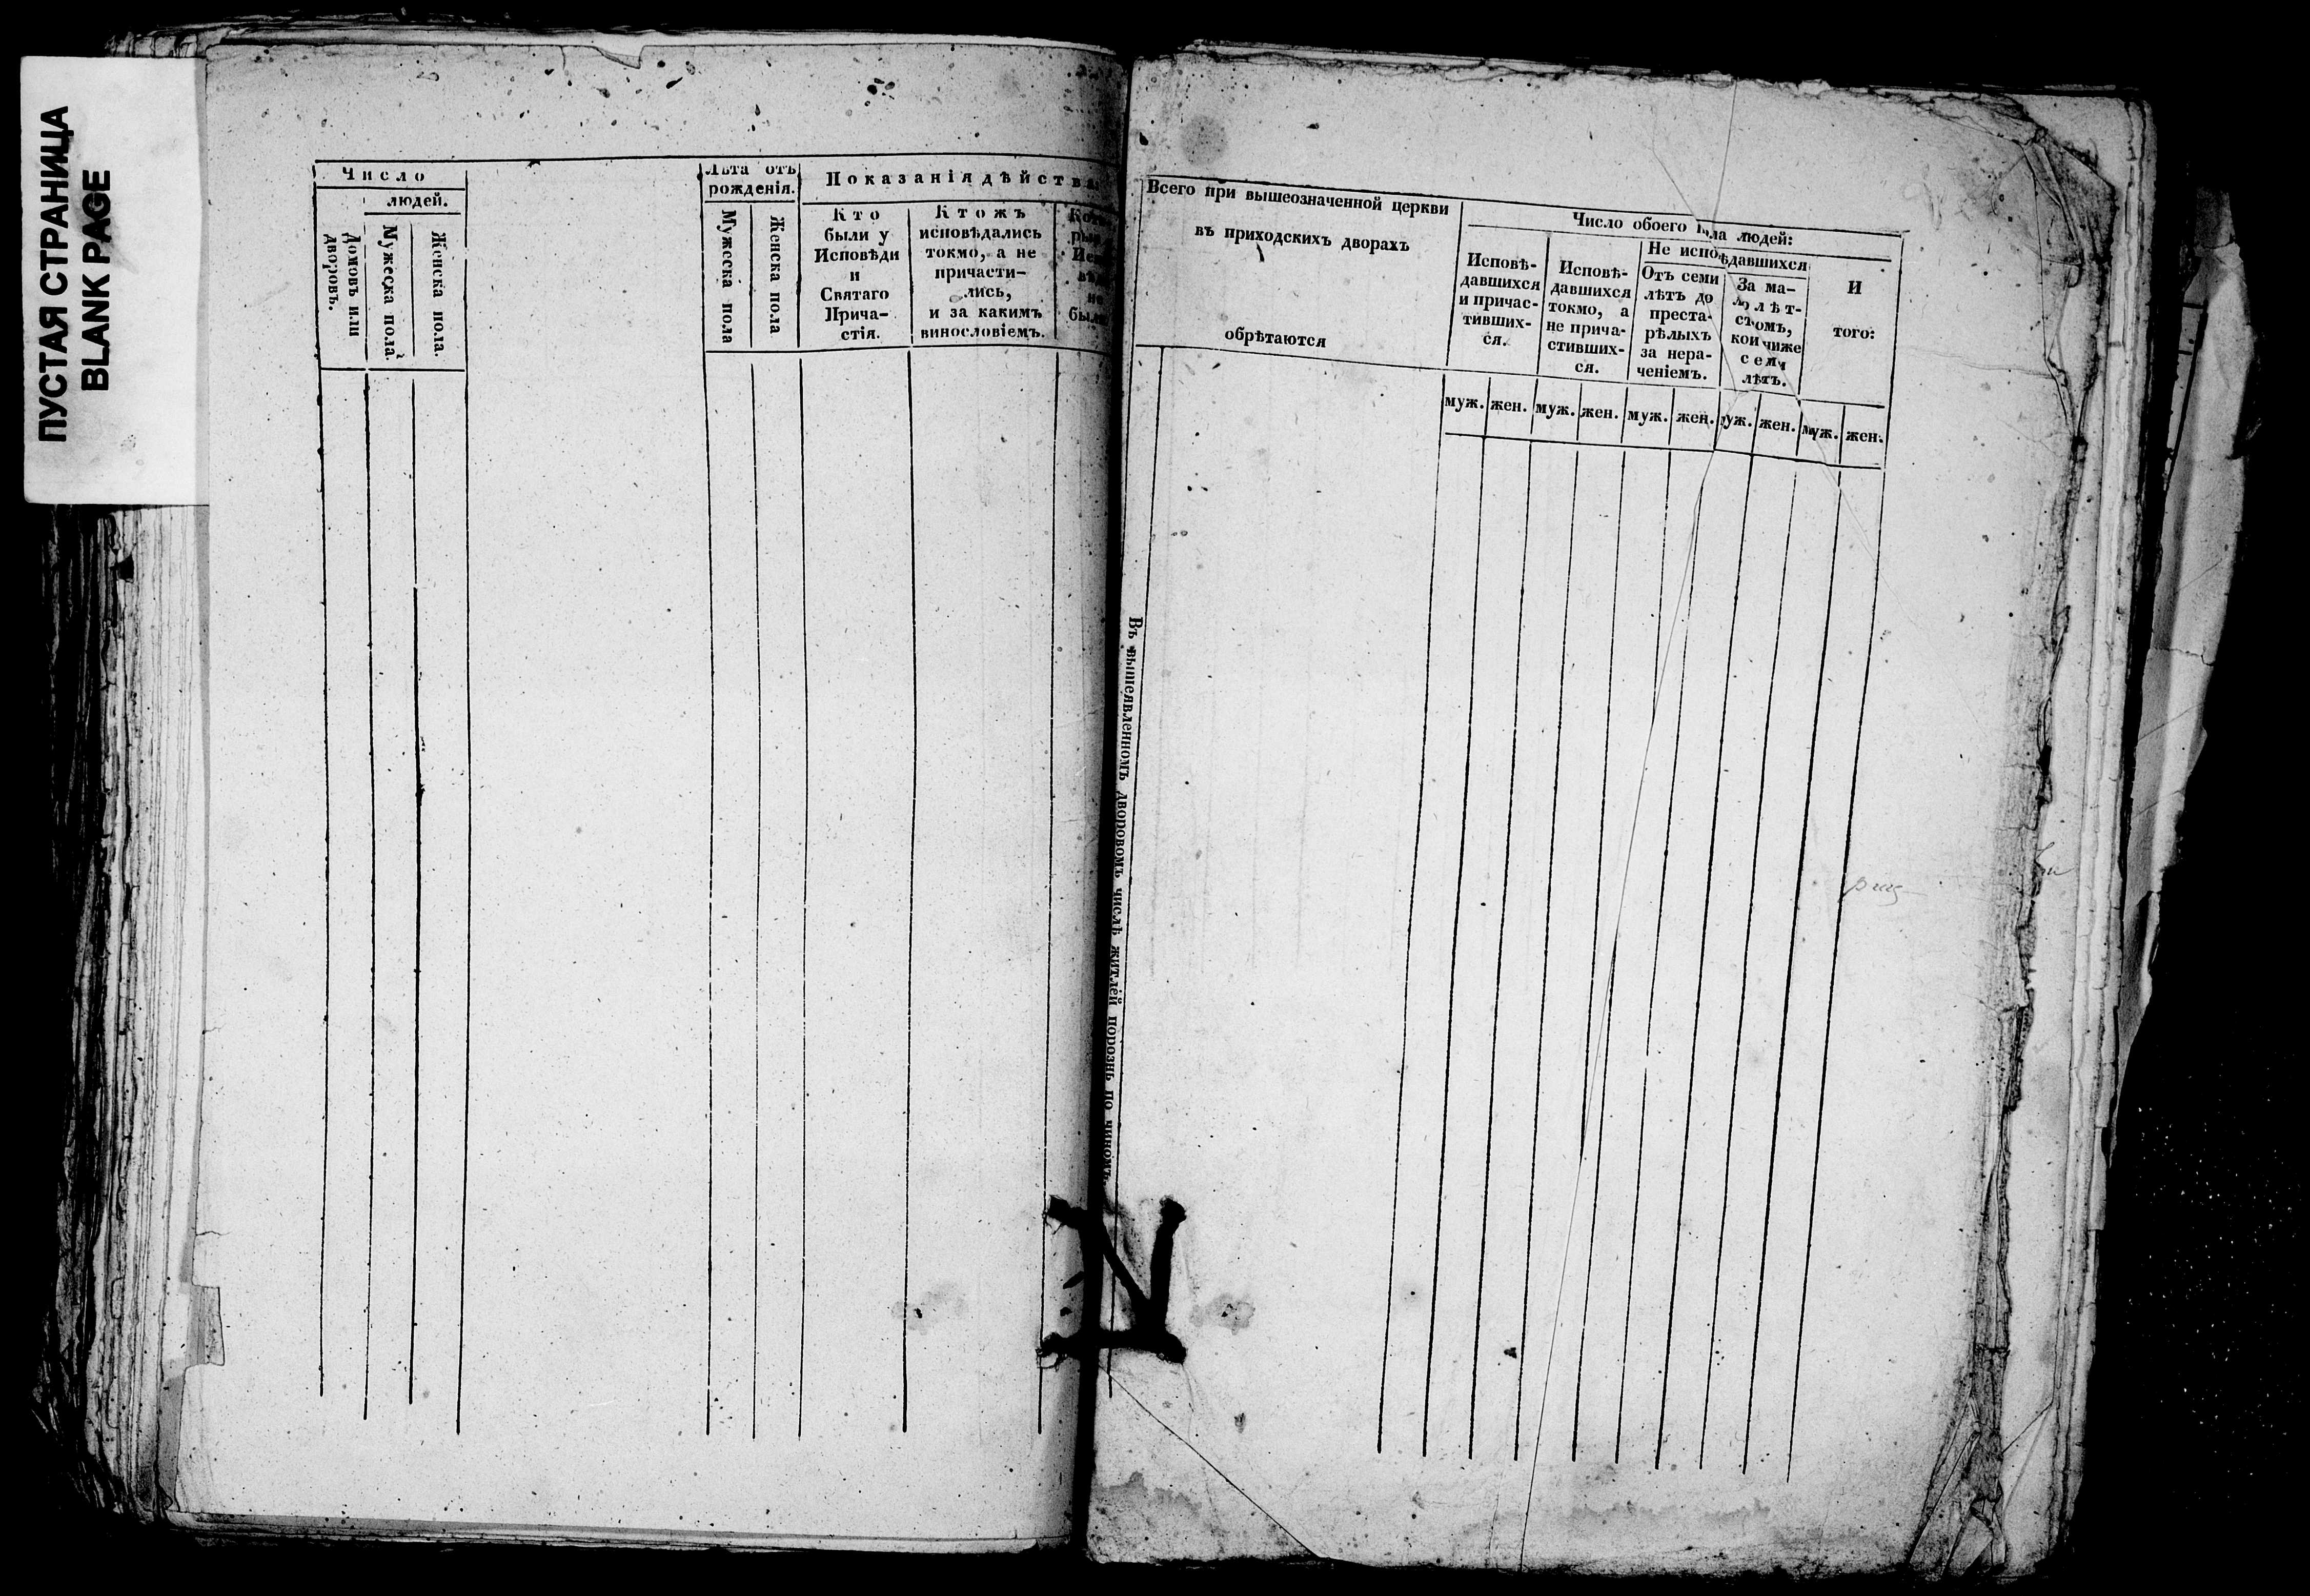 ПУСТАЯ СТРАНИЦА
BLANK PAGE
Число
людей.
Домовъ или
дворовъ.
Мужеска пола.
Женска пола.
Лѣта отъ
рожденія.
Мужеска пола
Женска пола
Показанія дѣйства
Кто
были у
Исповѣди
и
Святаго
Прича-
стія.
Ктожъ
исповѣдались
токмо, а не
причасти-
лись,
и за какимъ
винословіемъ.
Всего при вышеозначенной церкви
въ приходскихъ дворахъ
обрѣтаются
Число обоего пола людей:
Исповѣ-
давшихся
и причас-
тивших-
ся.
Исповѣ-
давшихся
токмо, а
не прича-
стивших-
ся.
Не исповѣдавшихся
Отъ семи
лѣтъ до
преста-
рѣлыхъ
за нера-
ченіемъ.
За ма-
лолѣт-
стомъ,
кои ниже
семи
лѣтъ.
И
того:
муж. жен. муж. жен. муж. жен. муж. жен. муж. жен.
Въ вышеявленномъ дворовомъ числѣ житлей порознь по чиномъ